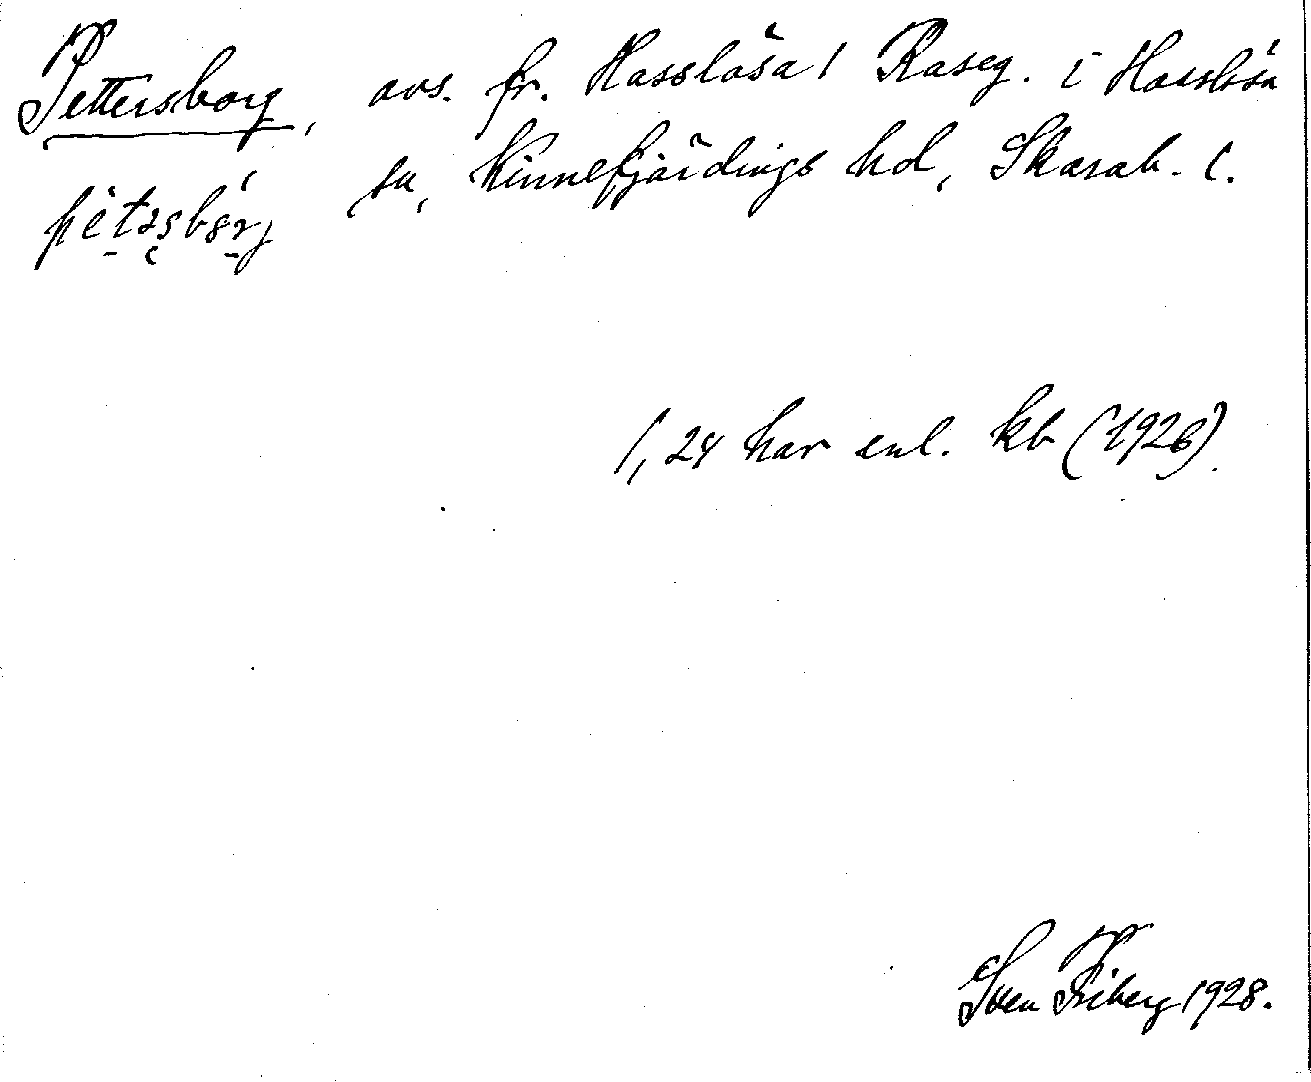 Pettersborg, avs. fr. Hasslösa 1 Raseg. i Hasslösa
sn, Kinnefjärdings hd, Skarab. l.
1,24 har enl. kb (1926).
Sven Friberg 1928.